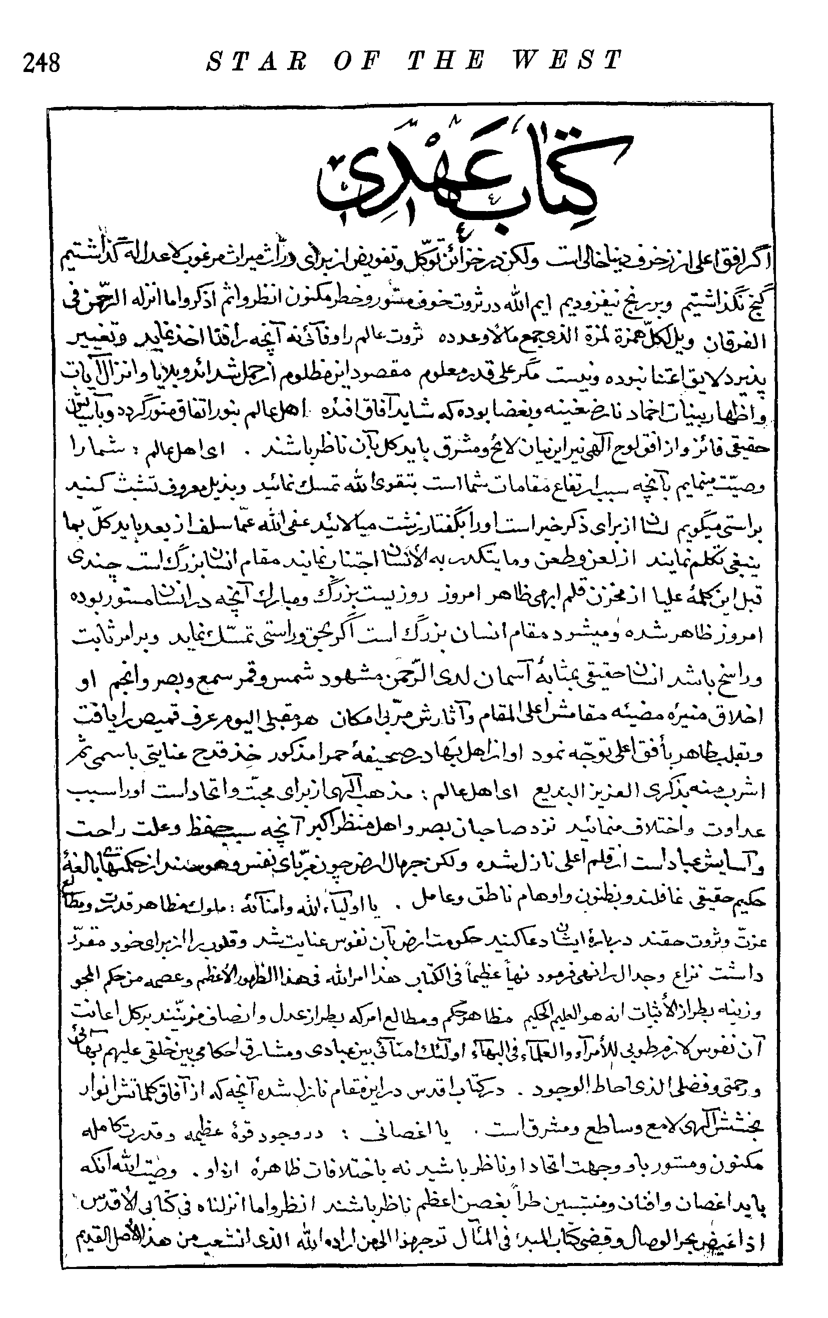 248 STAR OF THE WEST
کتاب عهدی
اگر افق اعلی از زخرف دنیا خالیست ولکن در خزائن توکل و تفویض از برای ورّاث میراث مرغوب لا عدل له گذاشتیم
گنج نگذاشتیم و بر رنج نیفزودیم ایم الله در ثروت خوف مستور و خطر مکنون انظروا ثم اذکروا ما انزله الرّحمن فی
الفرقان ویل لکلّ همزة لمزة الذی جمع مالا و عدده ثروت عالم را وفائی نه آنچه را فنا اخذ نماید و تغییر
پذیرد لایق اعتنا نبوده و نیست مگر علی قدر معلوم مقصود این مظلوم از حمل شداید و بلایا و انزال آیات
و اظهار بینات اخماد نار ضغینه و بغضا بوده که شاید آفاق افئده اهل عالم بنور اتفاق منور گردد و بآسایش
حقیقی فائز و از افق لوح الهی نیر این بیان لائح و مشرق باید کل بآن ناظر باشند . ای اهل عالم : شما را
وصیّت مینمایم بآنچه سبب ارتفاع مقامات شما است بتقوی الله تمسک نمائید و بذیل معروف تشبث کنید
براستی میگویم لسان از برای ذکر خیر است او را بگفتار زشت میالائید عفی الله عمّا سلف از بعد باید کلّ بما
ینبغی تکلم نمایند از لعن و طعن و ما یتکدر به الانسان اجتناب نمایند مقام انسان بزرگ است چندی
قبل این کلمهٔ علیا از مخزن قلم ابهی ظاهر امروز روزیست بزرگ و مبارک آنچه در انسان مستور بوده
امروز ظاهر شده و میشود مقام انسان بزرگ است اگر بحق و راستی تمسّک نماید و بر امر ثابت
و راسخ باشد انسان حقیقی بمثابهٔ آسمان لدی الرّحمن مشهود شمس و قمر سمع و بصر و انجم او
اخلاق منیره مضیئه مقامش اعلی المقام و آثارش مربّی امکان هر مقبلی الیوم عرف قمیص را یافت
و بقلب طاهر بأفق اعلی توجّه نمود او از اهل بهاء در صحیفهٔ حمرا مذکور خذ قدح عنایتی باسمی ثم
اشرب منه بذکری العزیز البدیع ای اهل عالم : مذهب الهی از برای محبّت و اتحاد است او را سبب
عداوت و اختلاف منمائید نزد صاحبان بصر و اهل منظر اکبر آنچه سبب حفظ و علت راحت
و آسایش عباد است از قلم اعلی نازل شده ولکن جهال ارض چون مربّای نفس و هوسند از حکمتهای بالغهٔ
حکیم حقیقی غافلند و بظنون و اوهام ناطق و عامل . یا اولیاء الله و امنائه : ملوک مظاهر قدرت و مطالع
عزت و ثروت حقند دربارهٔ ایشان دعا کنید حکومت ارض بآن نفوس عنایت شد و قلوب را از برای خود مقرّر
داشت نزاع و جدال را نهی فرمود نهیاً عظیماً فی الکتاب هذا امر الله فی هذا الظهور الاعظم و عصمه من حکم المحو
و زینه بطراز الأثبات انه هو العلیم الحکیم مظاهر حکم و مطالع امر که بطراز عدل و انصاف مزیّنند بر کل اعانت
آن نفوس لازم طوبی للأمراء و العلماء فی البهاء اولئک امنائی بین عبادی و مشارق احکامی بین خلقی علیهم بهائی
و رحمتی و فضلی الذی احاط الوجود . در کتاب اقدس در این مقام نازل شده آنچه که از آفاق کلماتش انوار
بخشش الهی لامع و ساطع و مشرق است . یا اغصانی : در وجود قوة عظیمه و قدرت کامله
مکنون و مستور باو و جهت اتحاد او ناظر باشید نه باختلافات ظاهرهٔ از او . وصیّت الله آنکه
باید اغصان و افنان و منتسبین طراً بغصن اعظم ناظر باشند انظروا ما انزلناه فی کتابی الاقدس
اذا غیض بحر الوصال و قضی کتاب المبدء فی المآل توجهوا الی من اراده الله الذی انشعب من هذا الأصل القدیم